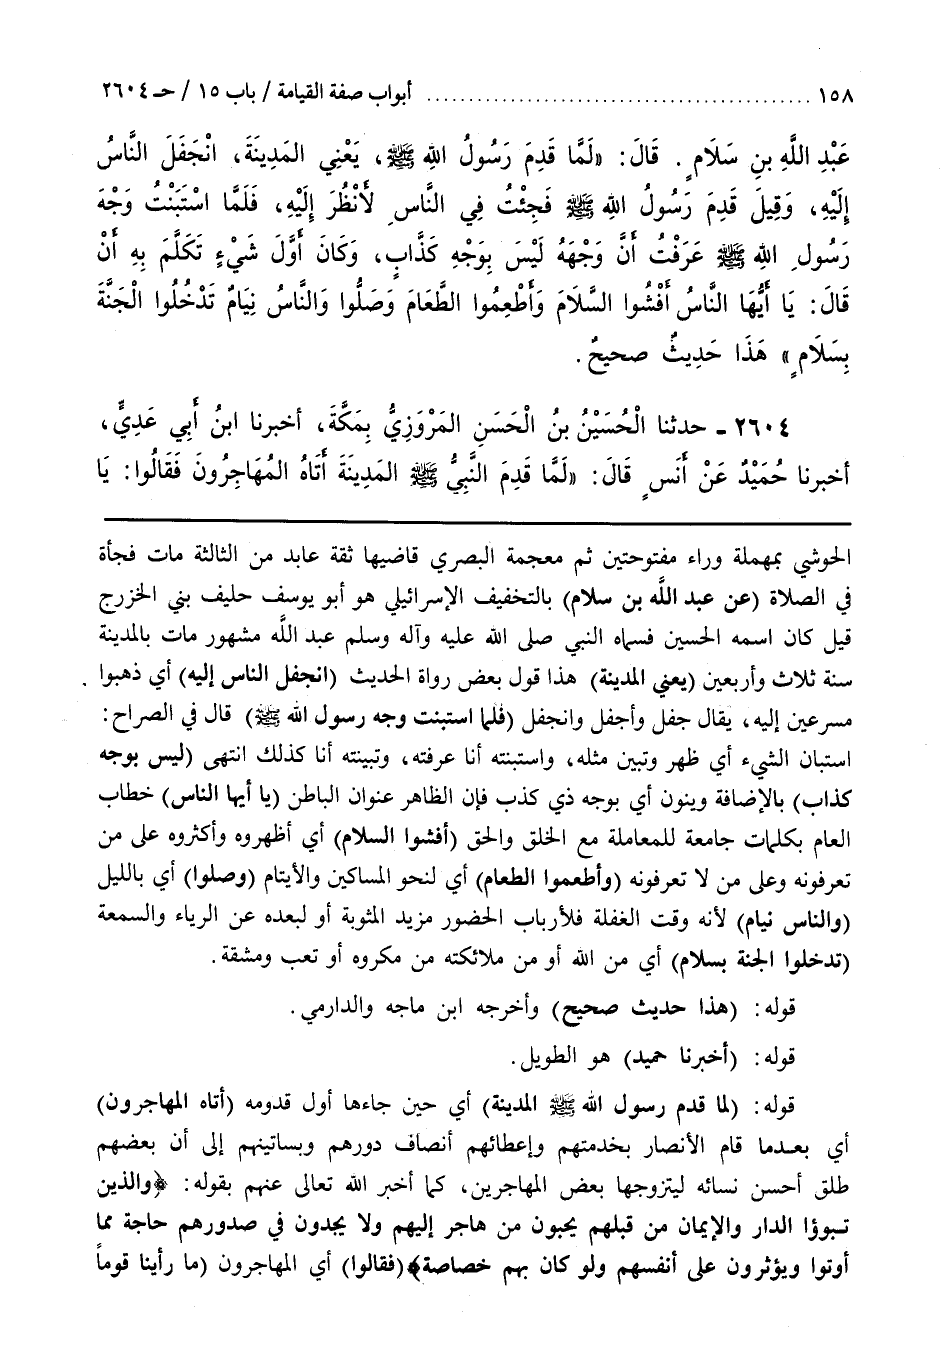 ١٥٨ ................................................ أبواب صفة القيامة / باب ١٥ / حـ ٢٦٠٤
عَبْدِ اللَّهِ بنِ سَلَامٍ. قَالَ: «لَمَّا قَدِمَ رَسُولُ اللهِ ﷺ، يَعْنِي المَدِينَةَ، انْجَفَلَ النَّاسُ
إِلَيْهِ، وَقِيلَ قَدِمَ رَسُولُ اللهِ ﷺ فَجِئْتُ فِي النَّاسِ لأَنْظُرَ إِلَيْهِ، فَلَمَّا اسْتَبَنْتُ وَجْهَ
رَسُولِ اللهِ ﷺ عَرَفْتُ أَنَّ وَجْهَهُ لَيْسَ بِوَجْهِ كَذَّابٍ، وَكَانَ أَوَّلَ شَيْءٍ تَكَلَّمَ بِهِ أَنْ
قَالَ: يَا أَيُّهَا النَّاسُ أَفْشُوا السَّلَامَ وَأَطْعِمُوا الطَّعَامَ وَصَلُّوا وَالنَّاسُ نِيَامٌ تَدْخُلُوا الْجَنَّةَ
بِسَلَامٍ» هَذَا حَدِيثٌ صحيحٌ.
٢٦٠٤ ـ حدثنا الْحُسَيْنُ بنُ الْحَسَنِ المَرْوَزِيُّ بِمَكَّةَ، أخبرنا ابنُ أَبِي عَدِيٍّ،
أخبرنا حُمَيْدٌ عَنْ أَنَسٍ قَالَ: «لَمَّا قَدِمَ النَّبِيُّ ﷺ المَدِينَةَ أَتَاهُ المُهَاجِرُونَ فَقَالُوا: يَا
الحوشي بمهملة وراء مفتوحتين ثم معجمة البصري قاضيها ثقة عابد من الثالثة مات فجأة
في الصلاة (عن عبد اللَّه بن سلام) بالتخفيف الإسرائيلي هو أبو يوسف حليف بني الخزرج
قيل كان اسمه الحسين فسماه النبي صلى الله عليه وآله وسلم عبد اللَّه مشهور مات بالمدينة
سنة ثلاث وأربعين (يعني المدينة) هذا قول بعض رواة الحديث (انجفل الناس إليه) أي ذهبوا
مسرعين إليه، يقال جفل وأجفل وانجفل (فلما استبنت وجه رسول الله ﷺ) قال في الصراح:
استبان الشيء أي ظهر وتبين مثله، واستبنته أنا عرفته، وتبينته أنا كذلك انتهى (ليس بوجه
كذاب) بالإضافة وينون أي بوجه ذي كذب فإن الظاهر عنوان الباطن (يا أيها الناس) خطاب
العام بكلمات جامعة للمعاملة مع الخلق والحق (أفشوا السلام) أي أظهروه وأكثروه على من
تعرفونه وعلى من لا تعرفونه (وأطعموا الطعام) أي لنحو المساكين والأيتام (وصلوا) أي بالليل
(والناس نيام) لأنه وقت الغفلة فلأرباب الحضور مزيد المثوبة أو لبعده عن الرياء والسمعة
(تدخلوا الجنة بسلام) أي من الله أو من ملائكته من مكروه أو تعب ومشقة.
قوله: (هذا حديث صحيح) وأخرجه ابن ماجه والدارمي.
قوله: (أخبرنا حميد) هو الطويل.
قوله: (لما قدم رسول الله ﷺ المدينة) أي حين جاءها أول قدومه (أتاه المهاجرون)
أي بعدما قام الأنصار بخدمتهم وإعطائهم أنصاف دورهم وبساتينهم إلى أن بعضهم
طلق أحسن نسائه ليتزوجها بعض المهاجرين، كما أخبر الله تعالى عنهم بقوله: ﴿والذين
تبوؤا الدار والإيمان من قبلهم يحبون من هاجر إليهم ولا يجدون في صدورهم حاجة مما
أوتوا ويؤثرون على أنفسهم ولو كان بهم خصاصة﴾(فقالوا) أي المهاجرون (ما رأينا قوماً